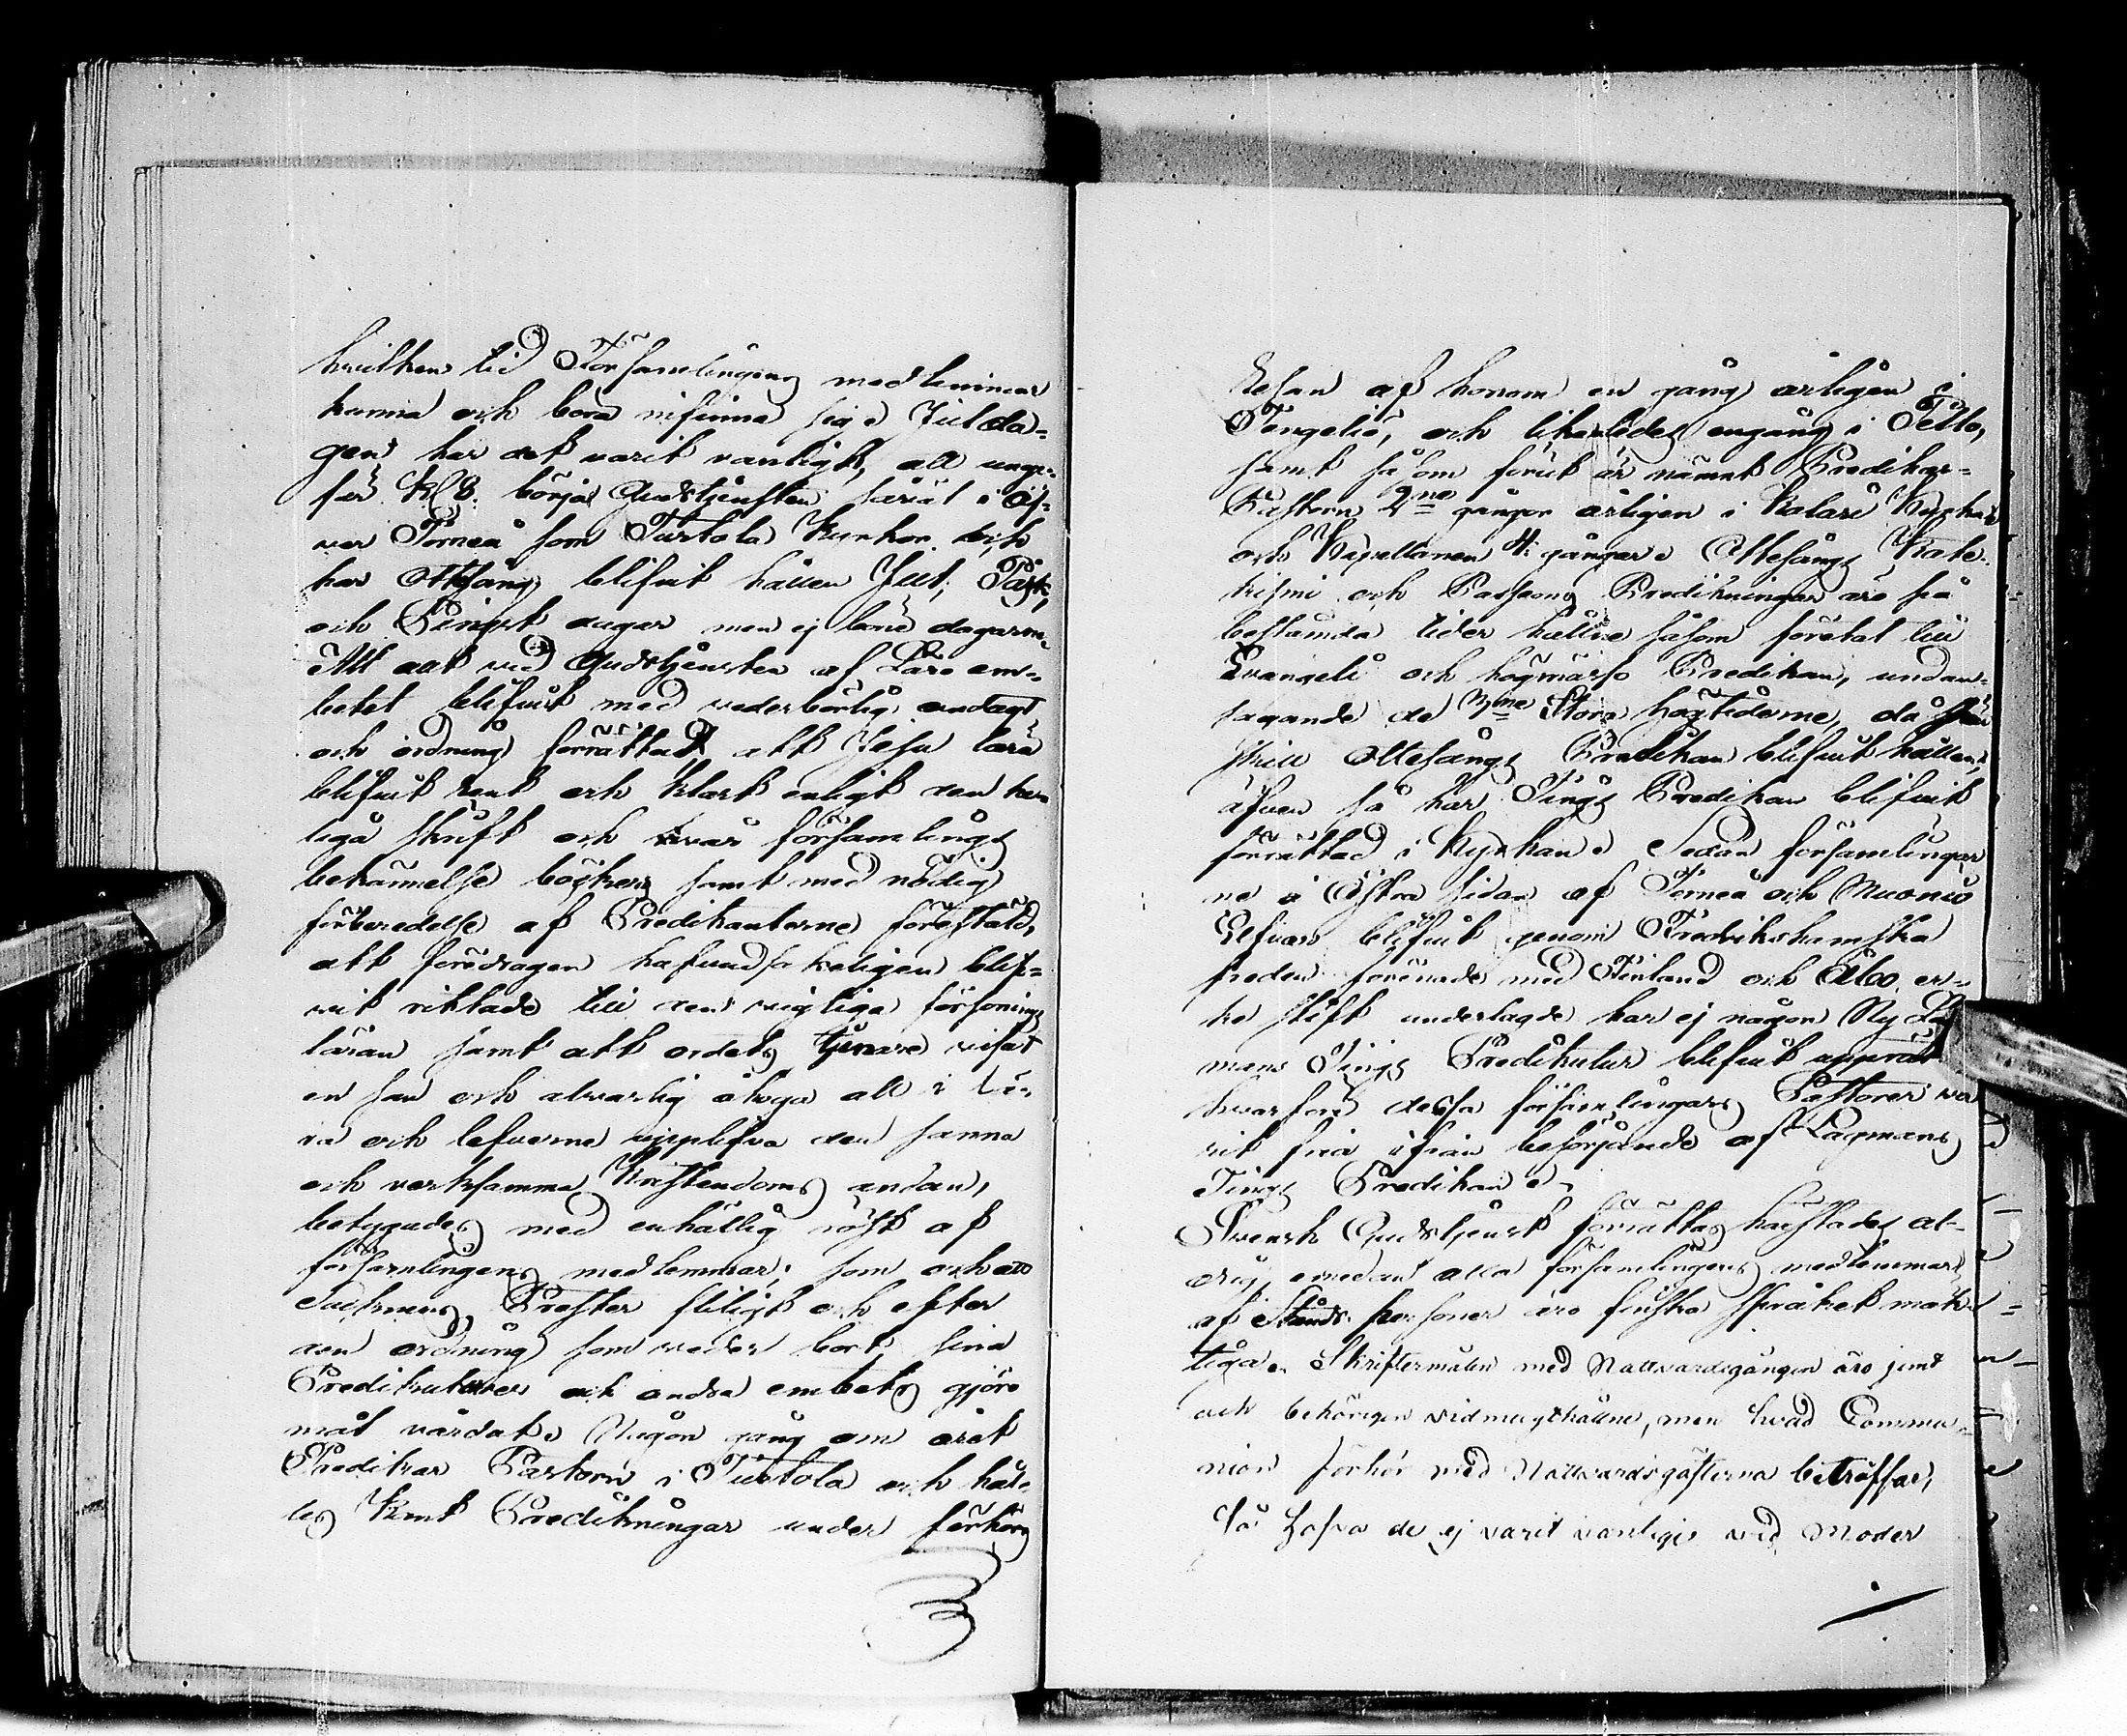 hvilken tid Församlingens medlemmar
kunna och böra infinna sig. Juldagen
har det varit vanligt, att unge-
fär Kl 8. börjas Gudstjensten såväl i Öf-
ver Torneå som Turtola Kyrkor. och
har Ottesång blifvit hållen Jul, Påsk,
och Pingst dagar men ej böne dagarne.
Att allt vid Gudstjensten af Läro em-
betet blifvit med vederbörlig andagt
och ordning förrättad, att Jesu lära
blifvit rent och klart enligt den he-
liga skrift och vår församlings
bekännelse böcker samt med nödig
förberedelse af Predikanterne föreställd,
att föredragen hafvudsakeligen blif-
vit riktade till den vigtiga försonings
läran samt att ordets tjenare visat
en san och alvarlig åhoga att i Lä-
ra och lefverne upplifva den sanna
och verksamma Kristendoms andan,
betygades med enhällig röst af
församlingens medlemmar; som och att
Prester fliligt och efter
den ordning som veder bort, sina
Predikoturer och andra embets gjöro
mål vårdat. Någon gång om året
Predikar Pastorn i Turtola och hål-
les Predikningar under förhörs
Resan af honom en gång årligen i
Tengeliö, och likaledes engång i Pello,
samt såsom förut är nämnt Predikar
Pastorn 2ne gånger årligen i Kolari Kyrka
och Kapellanen 4 gånger. Ottesångs Kate-
kismi och Passions Predikningar äro på
bestämda tider hållne såsom företal till
Evangelii och högmässo Predikan, undan-
tagande de 3ne Stora högtiderne, då sär
skild Ottesångs Predikan blifvit hållen,
äfven så har Tings Predikan blifvit
förrättad i Kyrkan. Sedan församlingar
ne å Östra sidan af Torneå och Muonio
Elfvar blifvit genom Fredrikshamska
freden förenade med Finland och Åbo er-
ke stift underlagde har ej någon Ny Lag
mans Tings Predikotur blifvit upprät
hvarföre dessa församlingars Pastorer va
rit fria ifrån besörjande af Lagmans
Tings Predikan.
Svensk Gudstjenst förrättas härstädes al-
drig, emedan alla församlingens medlemmar
af Stånds personer äro finska språket mäk-
tiga. Skriftermålen med Nattvardsgången äro jemt
och behörigen vidmagthållne, men hvad Commu-
nion förhör med Nattvardsgästerna beträffar,
så hafva de ej varit vanlige vid Moder